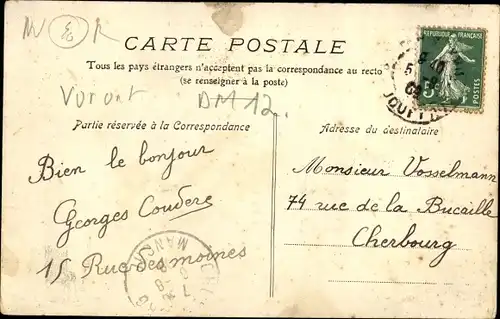 W E R
CARTE POSTALE
Tous les pays étrangers n'acceptent pas la correspondance au recto
(se renseigner à la poste)
DM 12.
Partie réservée à la Correspondance
Adresse du destinataire
RÉPUBLIQUE FRANÇAISE
5c
POSTES
Bien le bonjour
Georges Coudere
15 Rue des moines
Monsieur Vosselmann
74 rue de la Bucaille
Cherbourg